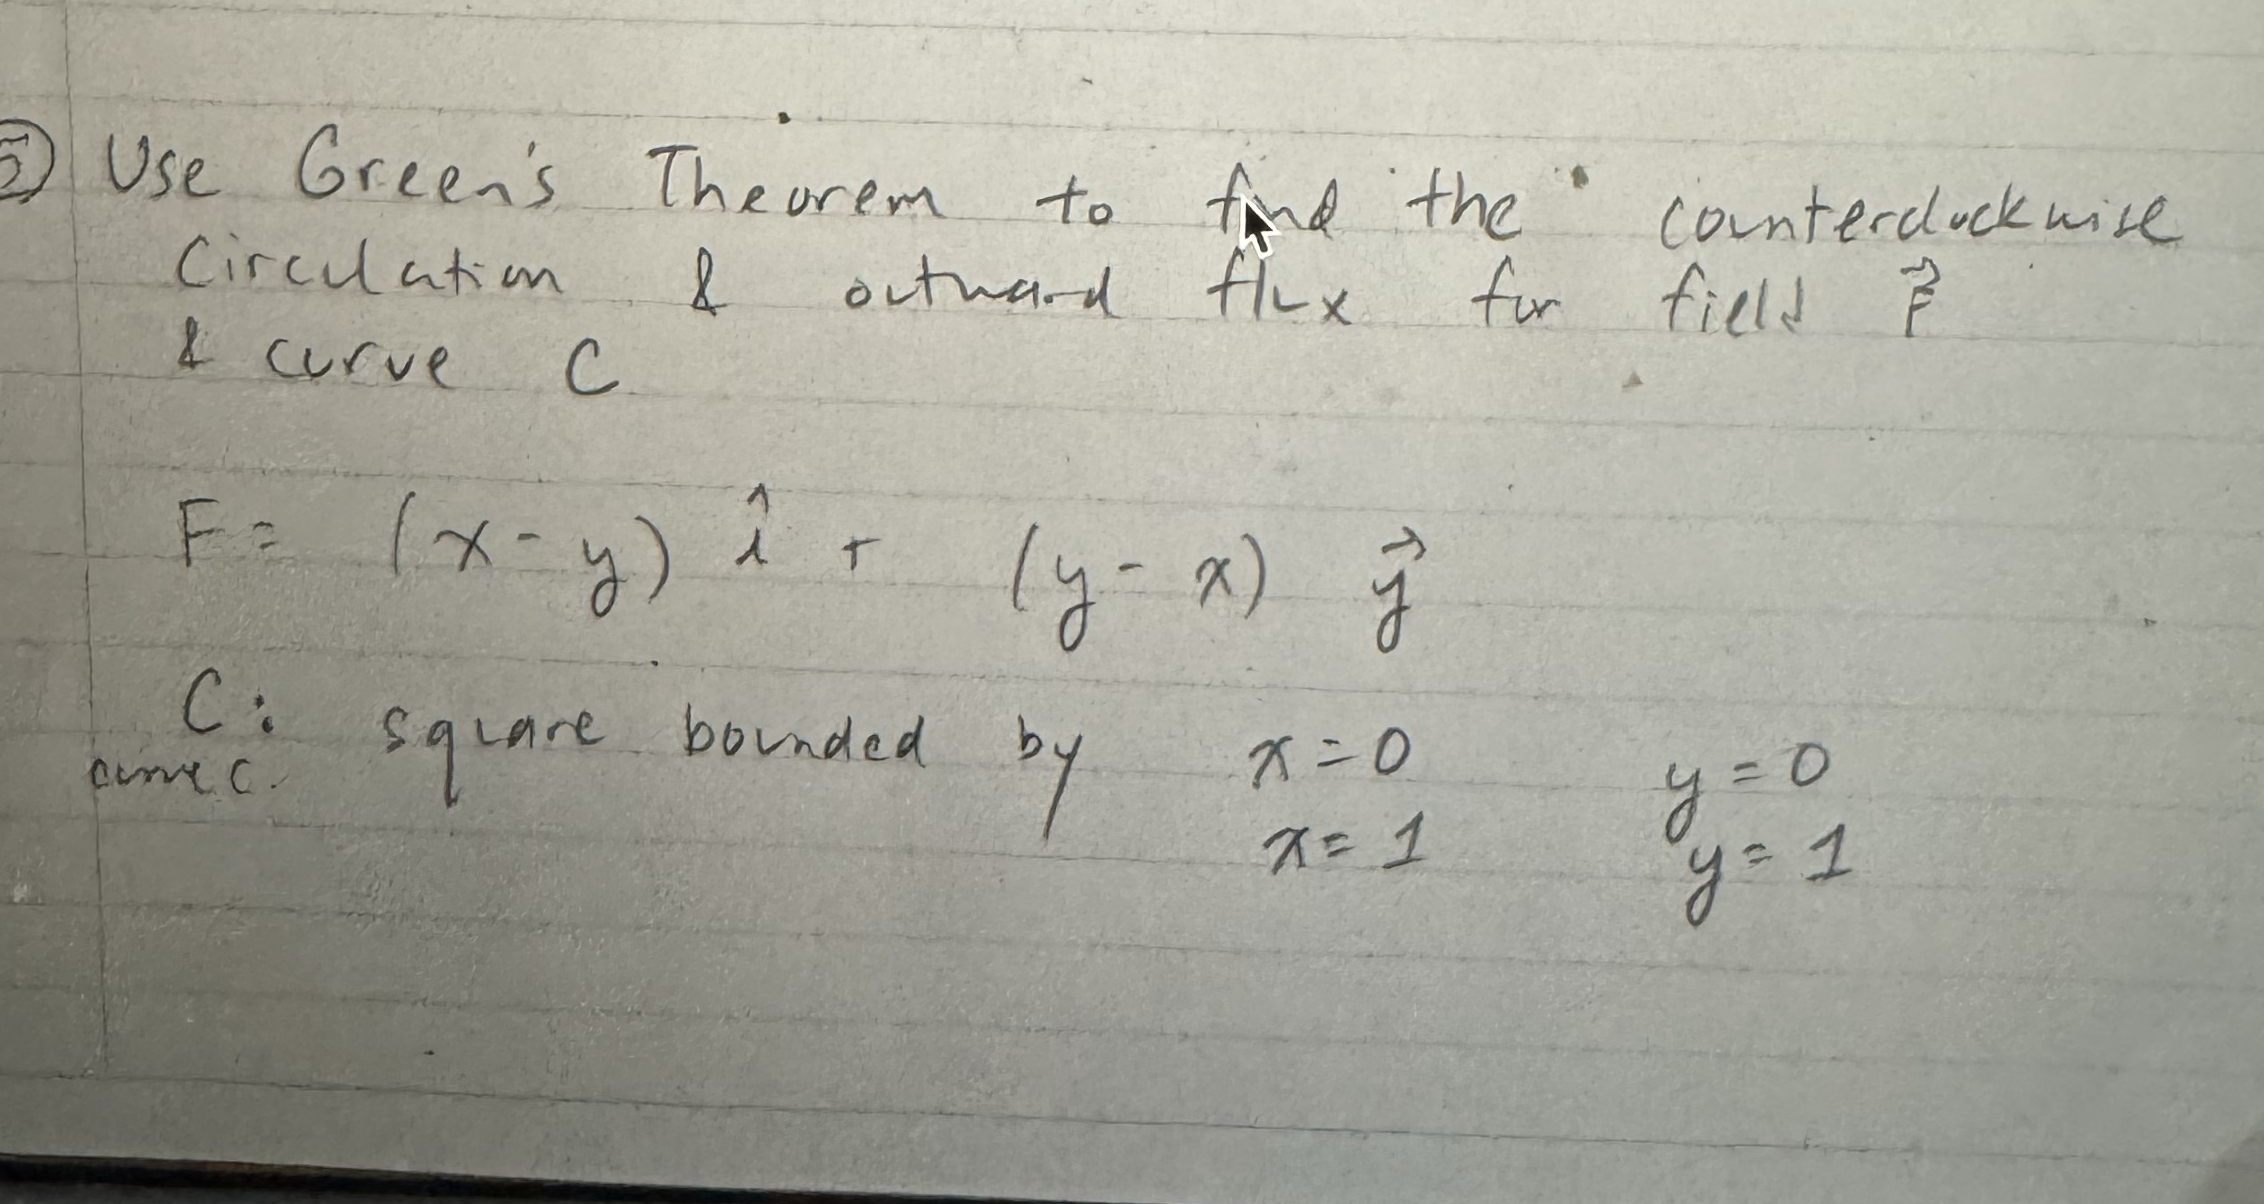 ⑤ Use Green's Theorem to find the counterclockwise
Circulation & outward flux for field F⃗
& curve C
F = (x - y) î + (y - x) y⃗
C: square bounded by x = 0 y = 0
curve C. x = 1 y = 1